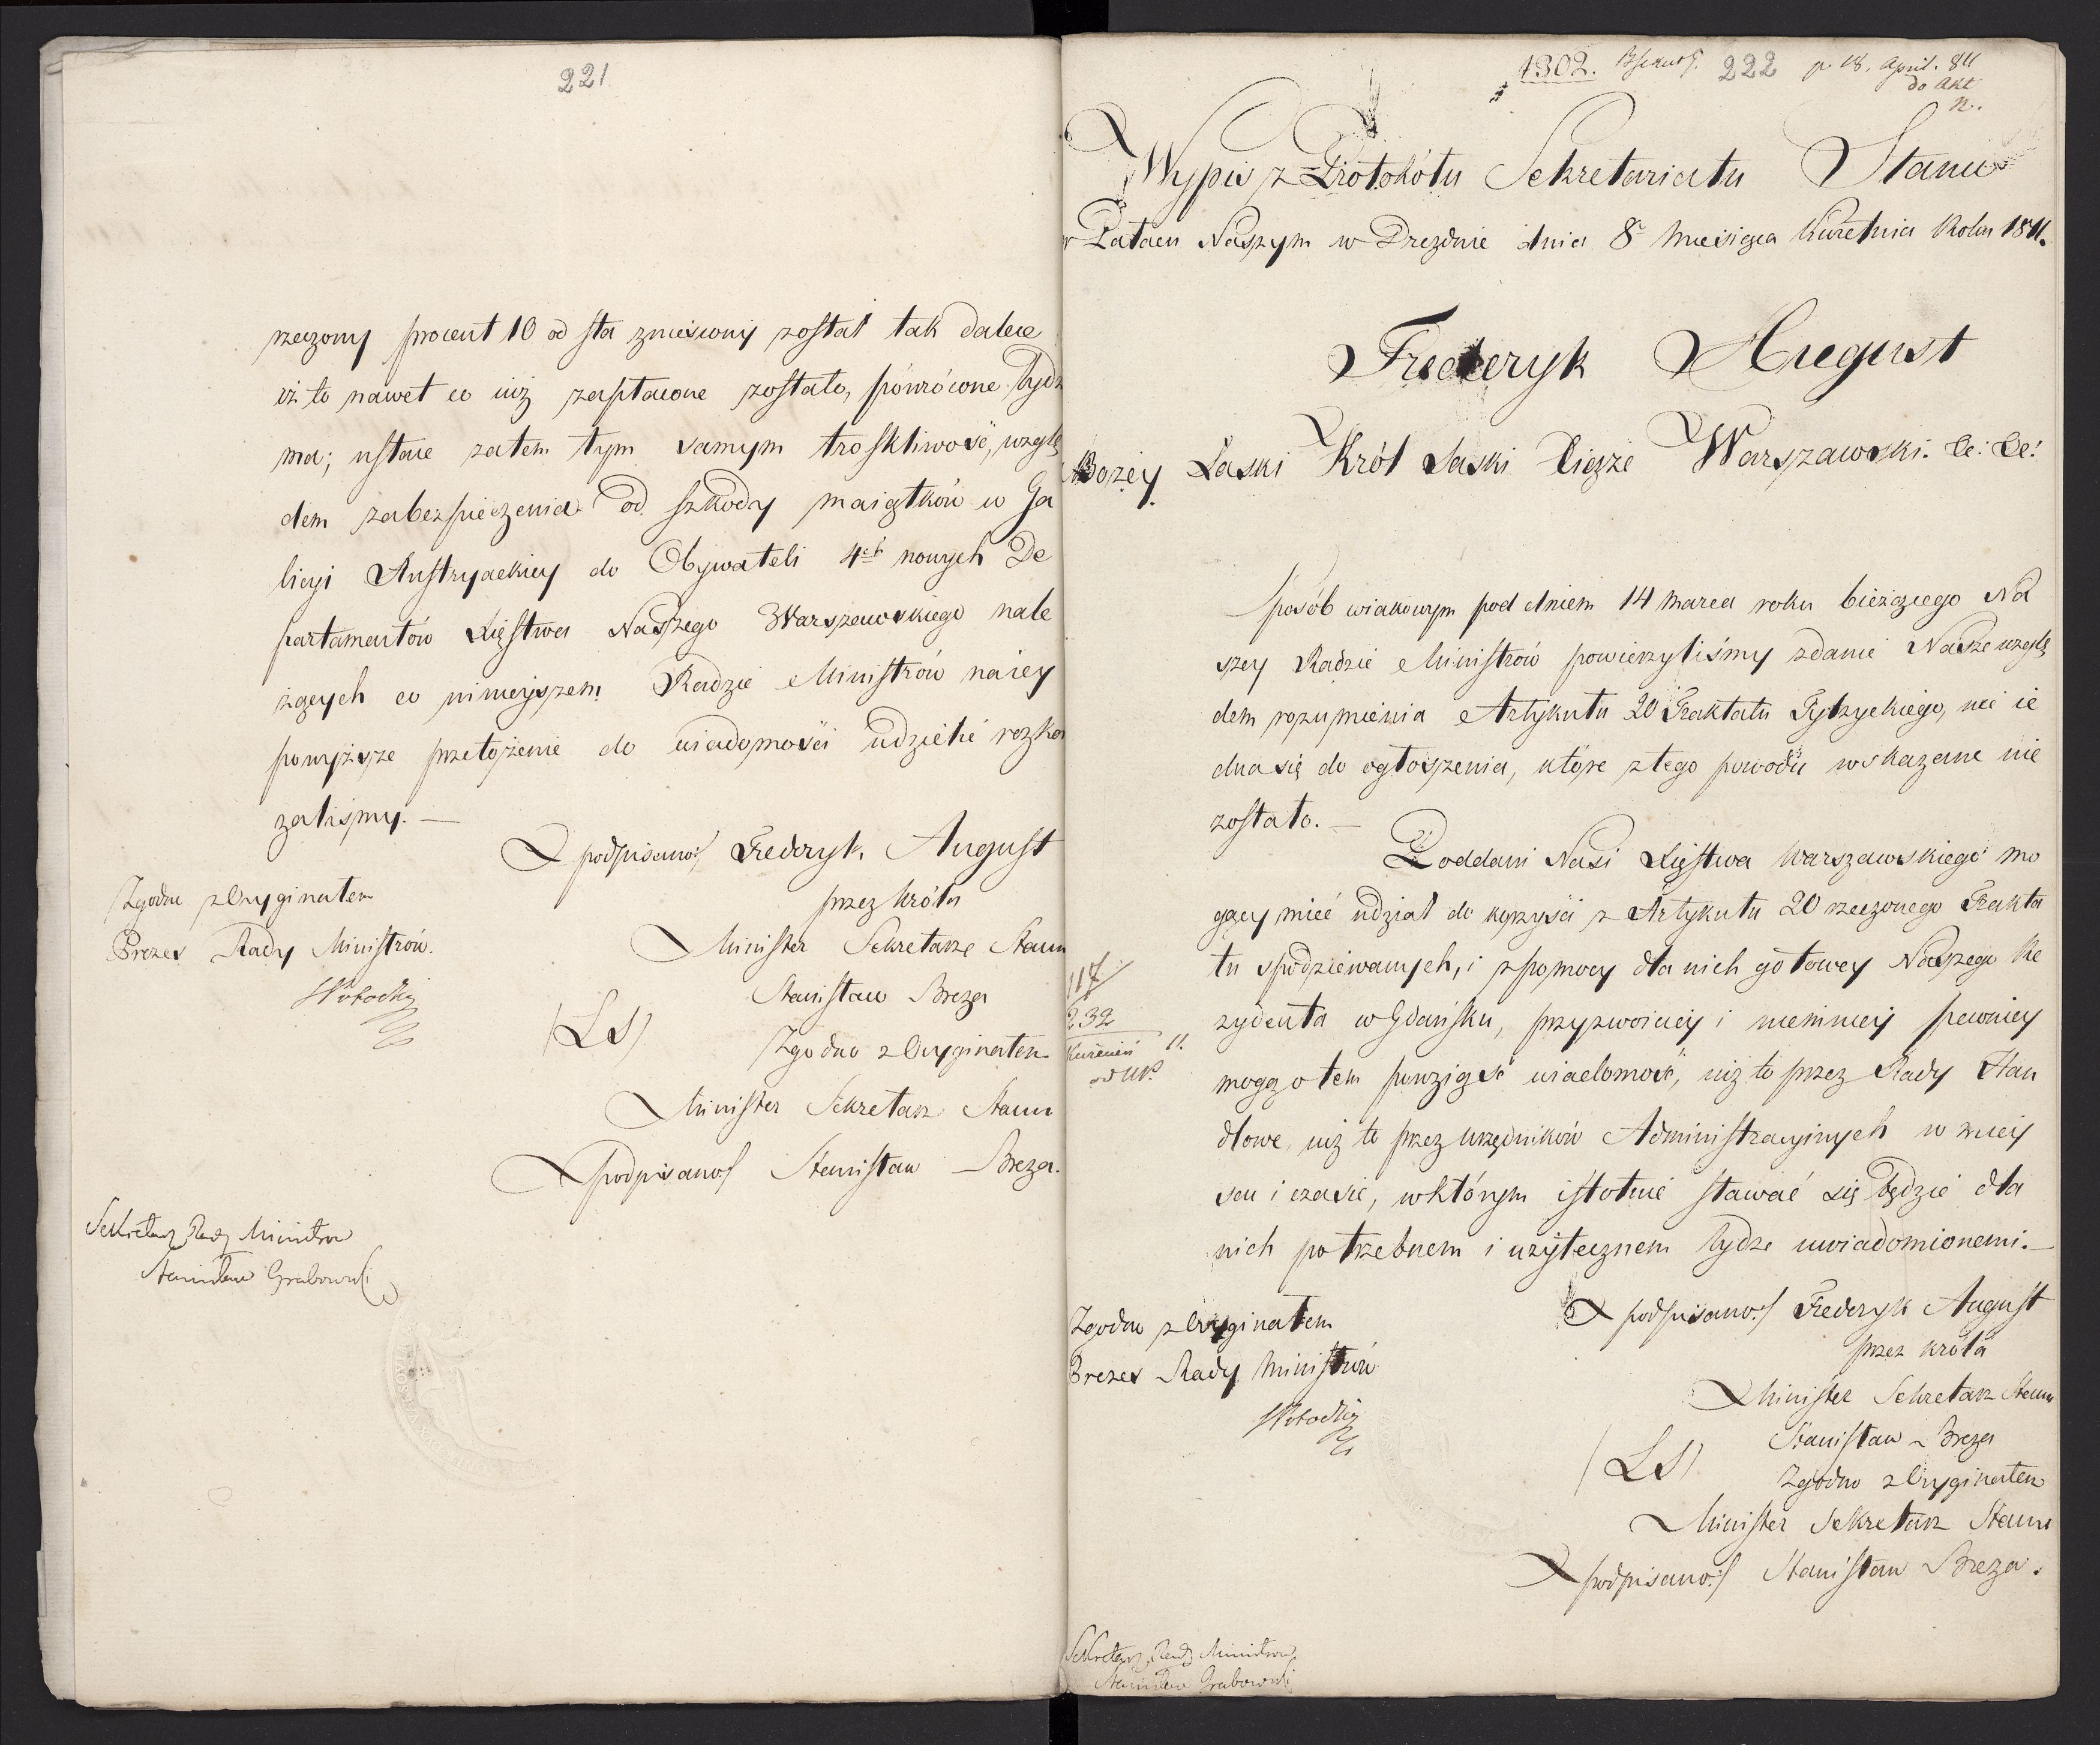 221
rzeczony procent 10 od sta zniesiony został tak dalece
iż to nawet co iuż zapłacone zostało, powrócone bydź
ma; ustaie zatem tym samym troskliwość, wzglę
dem zabezpieczenia od szkody maiątków w Ga
licyi Austryackiey do Obywateli 4ch nowych De
partamentów Xięstwa Naszego Warszawskiego nale
żących co ninieyszem Radzie Ministrów naiey
powyższe przełożenie do wiadomości udzielić rozka
zaliśmy. —
podpisano:/ Fryderyk August
przez Króla
Minister Sekretarz Stanu
Stanisław Breza
(LS)
Zgodno z Oryginałem
Minister Sekretarz Stanu
podpisano:/ Stanisław Breza.
Zgodno z Oryginałem
Prezes Rady Ministrów.
SPotocki
Sekretarz Rady Ministrow
Stanisław Grabowski
1302. 222 p. 18. April. 811
do Akt
n.
Wypis z Protokółu Sekretariatu Stanu
w Pałacu Naszym w Dreznie dnia 8o Miesiąca Kwietnia Roku 1811.
Frederyk August
z Bożey Łaski Król Saski Xiąże Warszawski. &c: &c:
Sposób wiakowym pod dniem 14 Marca roku bieżącego Na
szey Radzie Ministrów powierzyliśmy zdanie Nasze wzglę
dem rozumienia Artykułu 20 Traktatu Tylzyckiego, nie ie
dna się do ogłoszenia, które z tego powodu wskazane nie
zostało. —
Poddani Nasi Xięstwa Warszawskiego mo
gący mieć udział do korzyści z Artykułu 20 rzeczonego Trakta
tu spodziewanych, i z pomocy dla nich gotowey Naszego Re
zydenta w Gdańsku, przyzwoiciey i niemniey pewniey
mogą o tem powziąść wiadomość, iuż to przez Rady Han
dlowe iuż to przez urzędników Administracyinych w miey
scu i czasie, w którym istotnie stawać się będzie dla
nich potrzebnem i użytecznem bydź uwiadomionemi. —
117
232
Kwiecień 11.
podpisano:/ Frederyk August
przez króla
Minister Sekretarz Stanu
Stanisław Breza
(LS)
Zgodno z Oryginałem
Minister Sekretarz Stanu
podpisano:/ Stanisław Breza.
Zgodno z Oryginałem
Prezes Rady Ministrów
SPotocki
Sekretarz Rady Ministrow
Stanisław Grabowski